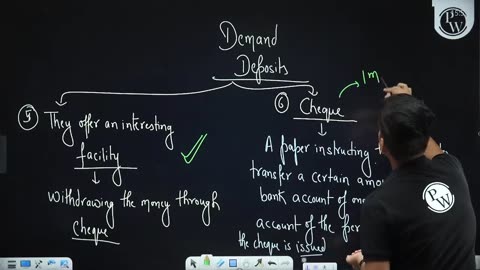 Demand
Deposits
⑤ They offer an interesting
facility
withdrawing the money through
cheque
⑥ Cheque
1 m
A paper instructing
transfer a certain
bank account of
account of the
the cheque is issued
PW
PW